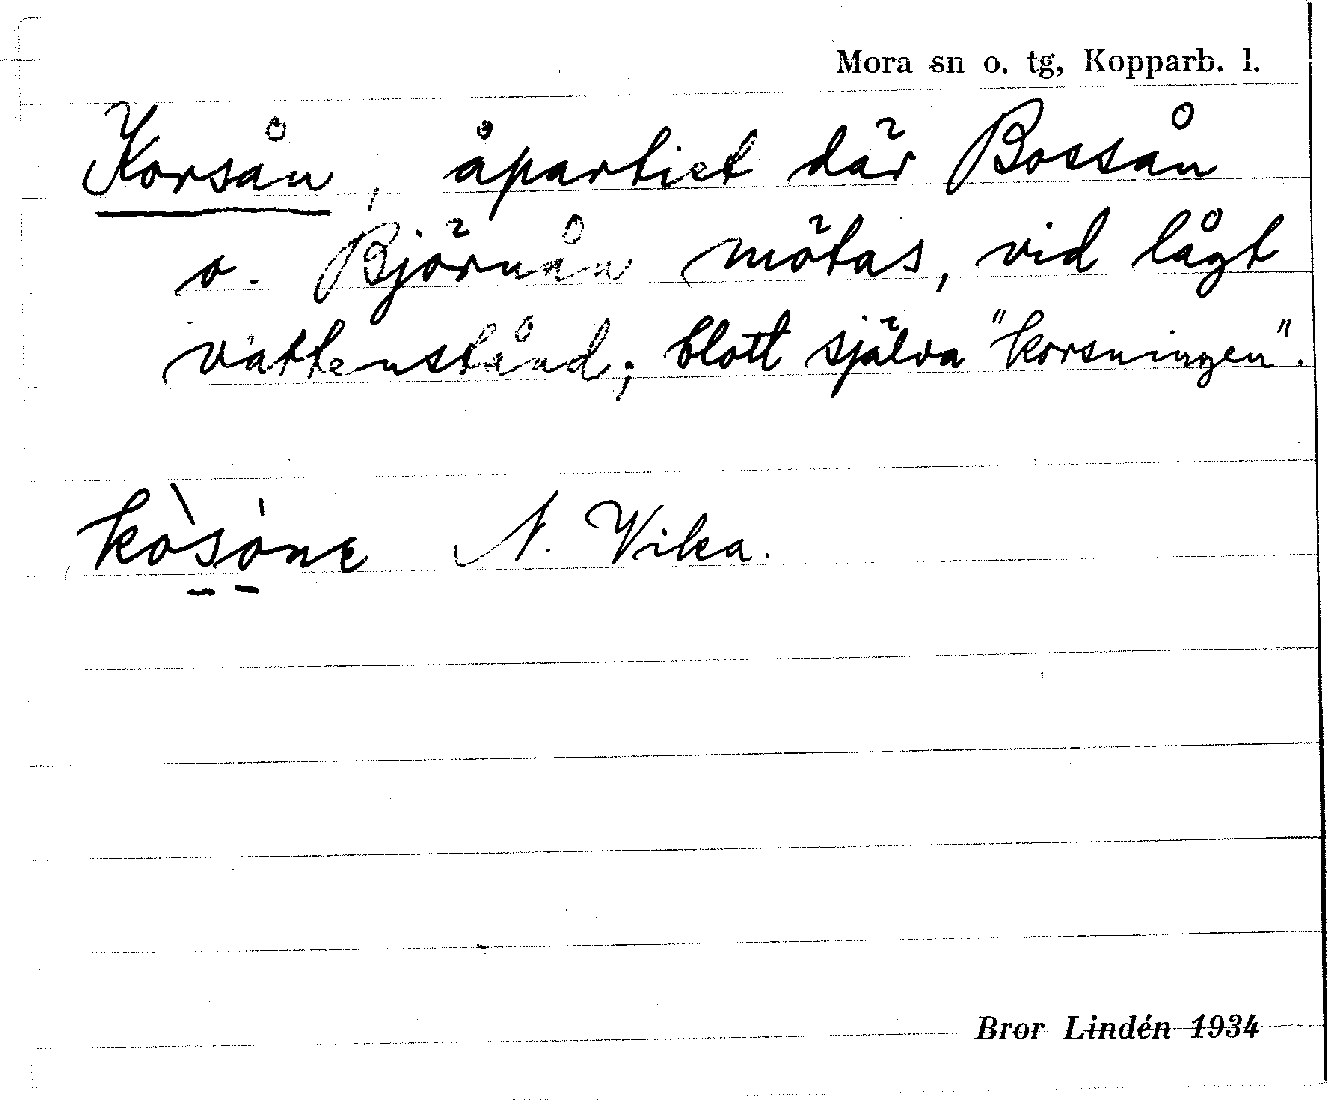 Mora sn o. tg, Kopparb. l.
Korsån, åpartiet där Bossån
o. Björnån mötas, vid lågt
vattenstånd; blott själva "korsningen".
kòsónɛ N. Vika.
Bror Lindén 1934